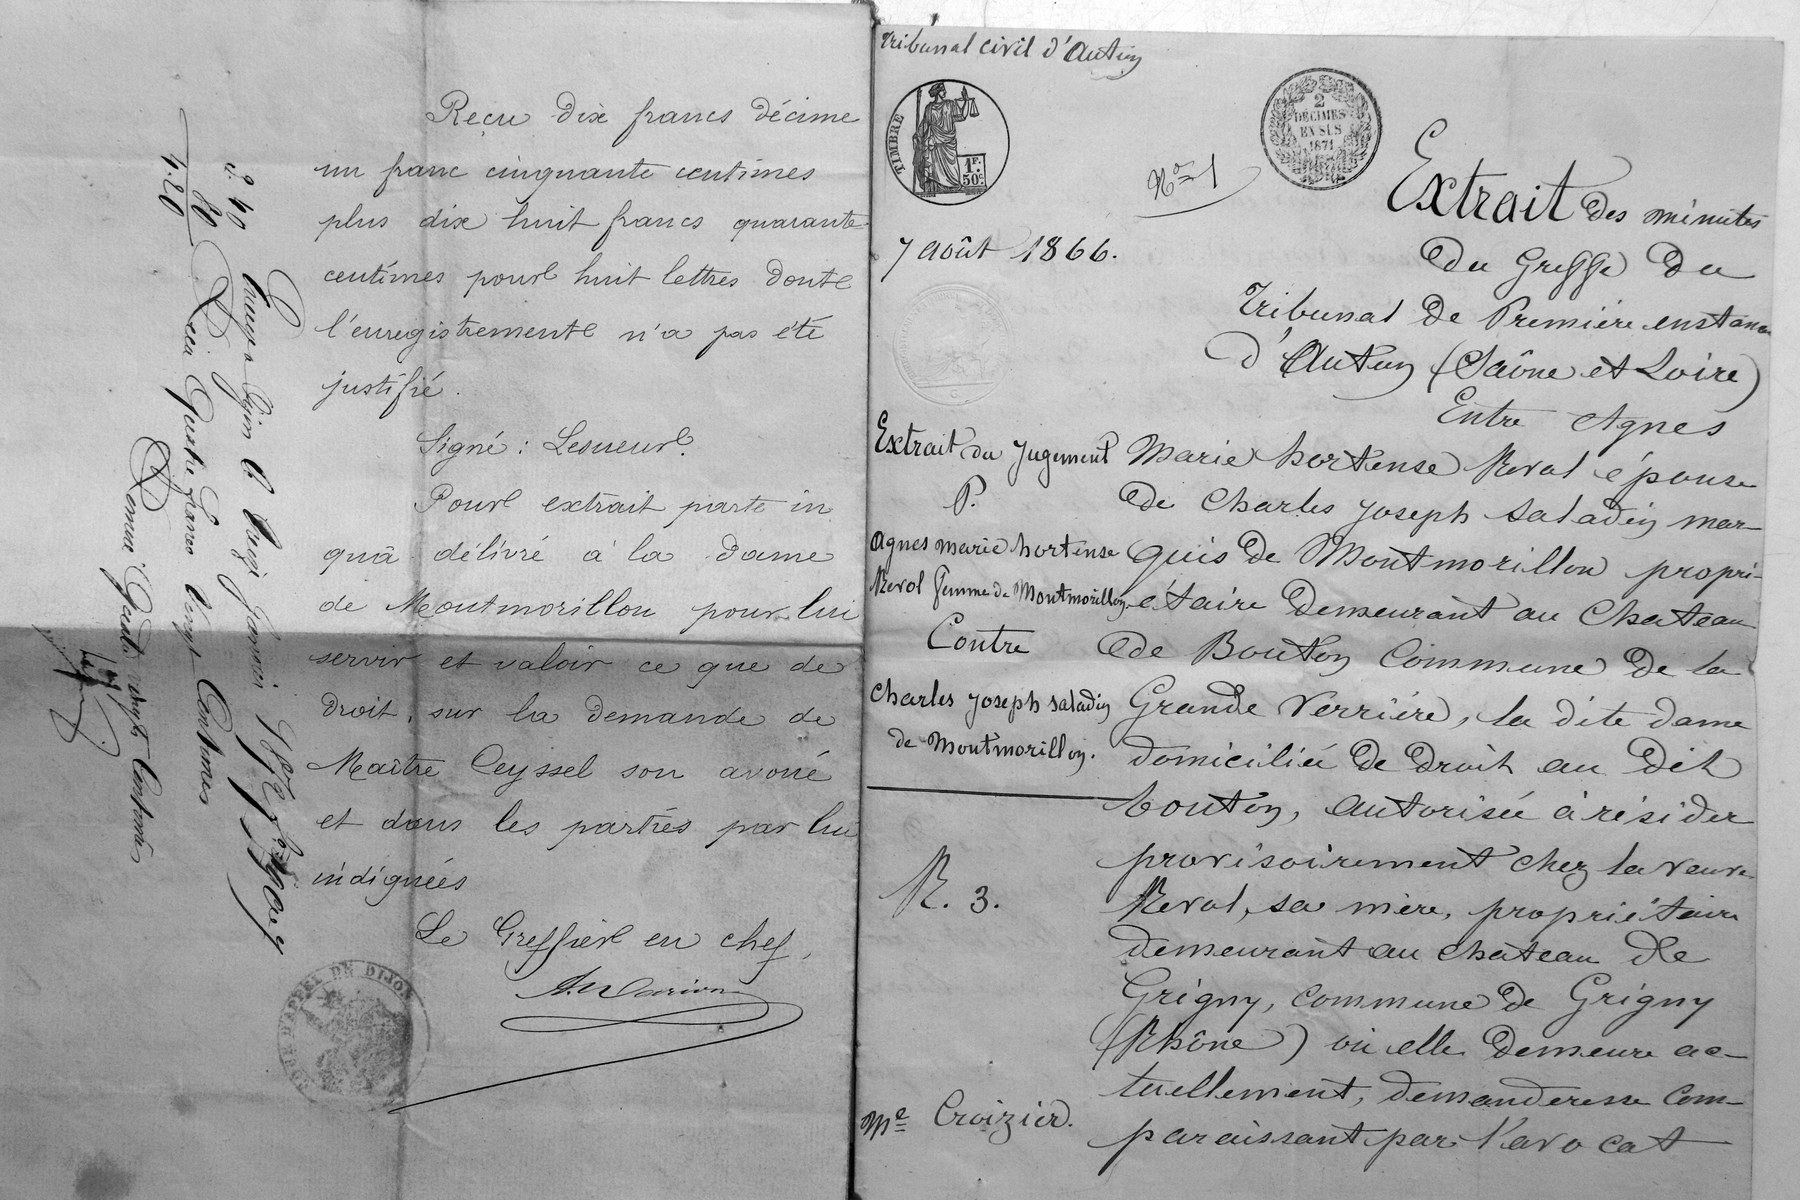 Reçu dix francs décime
un franc cinquante centimes
plus dix huit francs quarante
centimes pour huit lettres dont
l'enregistrement n'a pas été
justifié.
Signé : Lesueur.
Pour extrait parte in
quâ délivré à la dame
de Montmorillon pour lui
servir et valoir ce que de
droit, sur la demande de
Maître Ceyssel son avoué
et dans les parties par lui
indiquées
Le Greffier en chef,
COUR D'APPEL DE DIJON
2.40
80
4.20
Tribunal civil d'Autun
TIMBRE
1F.
50c.
2
DÉCIMES
EN SUS
1871
No 1
7 août 1866.
Extrait du Jugement
P.
Agnes marie hortense
Revol femme de Montmorillon
Contre
Charles Joseph Saladin
de Montmorillon.
R. 3.
Me Croizier.
Extrait des minutes
du Greffe du
Tribunal de Première instance
d'Autun (Saône et Loire)
Entre Agnes
Marie hortense Revol épouse
de Charles Joseph Saladin mar-
quis de Montmorillon propri-
étaire demeurant au Chateau
de Bouton Commune de la
Grande Verrière, la dite dame
domiciliée de droit au dit
bouton, autorisée à résider
provisoirement chez la veuve
Revol, sa mère, propriétaire
demeurant au chateau de
Grigny, commune de Grigny
(Rhône) où elle demeure ac-
tuellement, demanderesse com-
paraissant par l'avocat